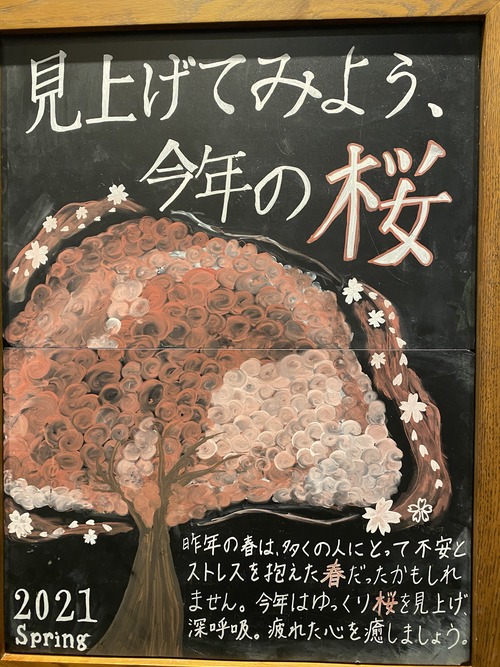 見上げてみよう、
今年の桜
昨年の春は、多くの人にとって不安と
ストレスを抱えた春だったかもしれ
ません。今年はゆっくり桜を見上げ、
深呼吸。疲れた心を癒しましょう。
2021
Spring